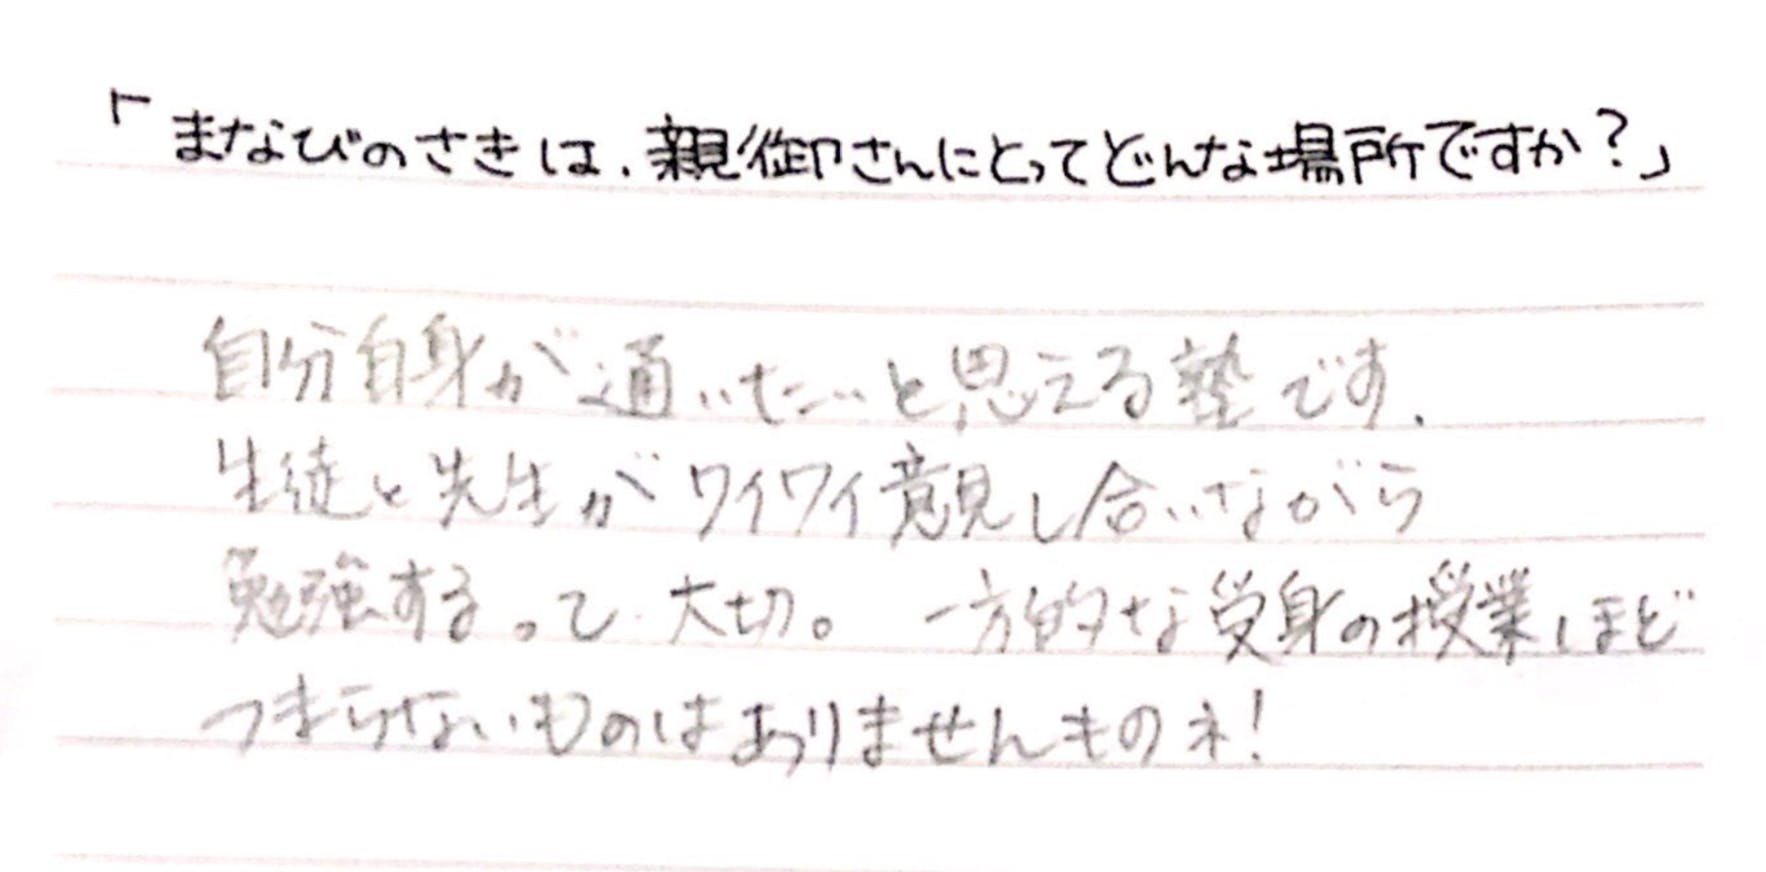 「まなびのさきは、親御さんにとってどんな場所ですか?」
自分自身が通いたいと思える塾です。
生徒と先生がワイワイ意見し合いながら
勉強するって大切。 一方的な受身の授業ほど
つまらないものはありませんものネ!